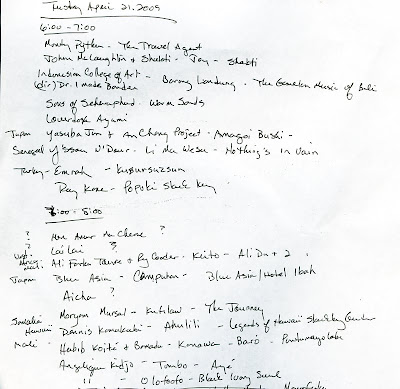 Tuesday April 21, 2009
6:00 - 7:00
Monty Python - The Travel Agent
John McLaughlin & Shakti - Joy - Shakti
Indonesian College of Art - Barong Landung - The Gamelan Music of Bali
(dir) Dr. I made Bandem
Sons of Scheherazade - Warm Sands
Lourdosk Ayami
Japan Yasuba Jun & An Chang Project - Amagoi Bushi -
Senegal Youssou N'Dour - Li Ma Weesu - Nothing's In Vain
Turkey - Emrah - Kusursuzsun
Ray Kane - Popoki Slack Key
7:00 - 8:00
? Mon Amour Ma Cherie ?
? Lai Lai ?
Mali Ali Farka Toure & Ry Cooder - Keito - Ali Du + 2
Japan Blue Asia - Campuhan - Blue Asia / Hotel Ibah
Aicha ?
Somalia Maryam Mursal - Kufilaw - The Journey
Hawaii Dennis Kamakahi - Ahulili - Legends of Hawaii Slack Key Guitar
Mali - Habib Koité & Bamada - Kanawa - Baro - Putumayo
Angelique Kidjo - Tombo - Ayé
" " - Olofoofo - Black Ivory Soul